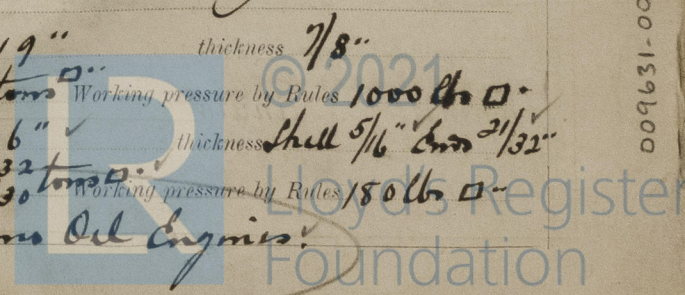 19" thickness 7/8"
© 2021
tons □" Working pressure by Rules 1000 lbs □"
6" thickness Shell 5/16" Ends 21/32"
32
30 tons □" Working pressure by Rules 180 lbs □"
Oil Engines.
Lloyd's Register
Foundation
009631-00